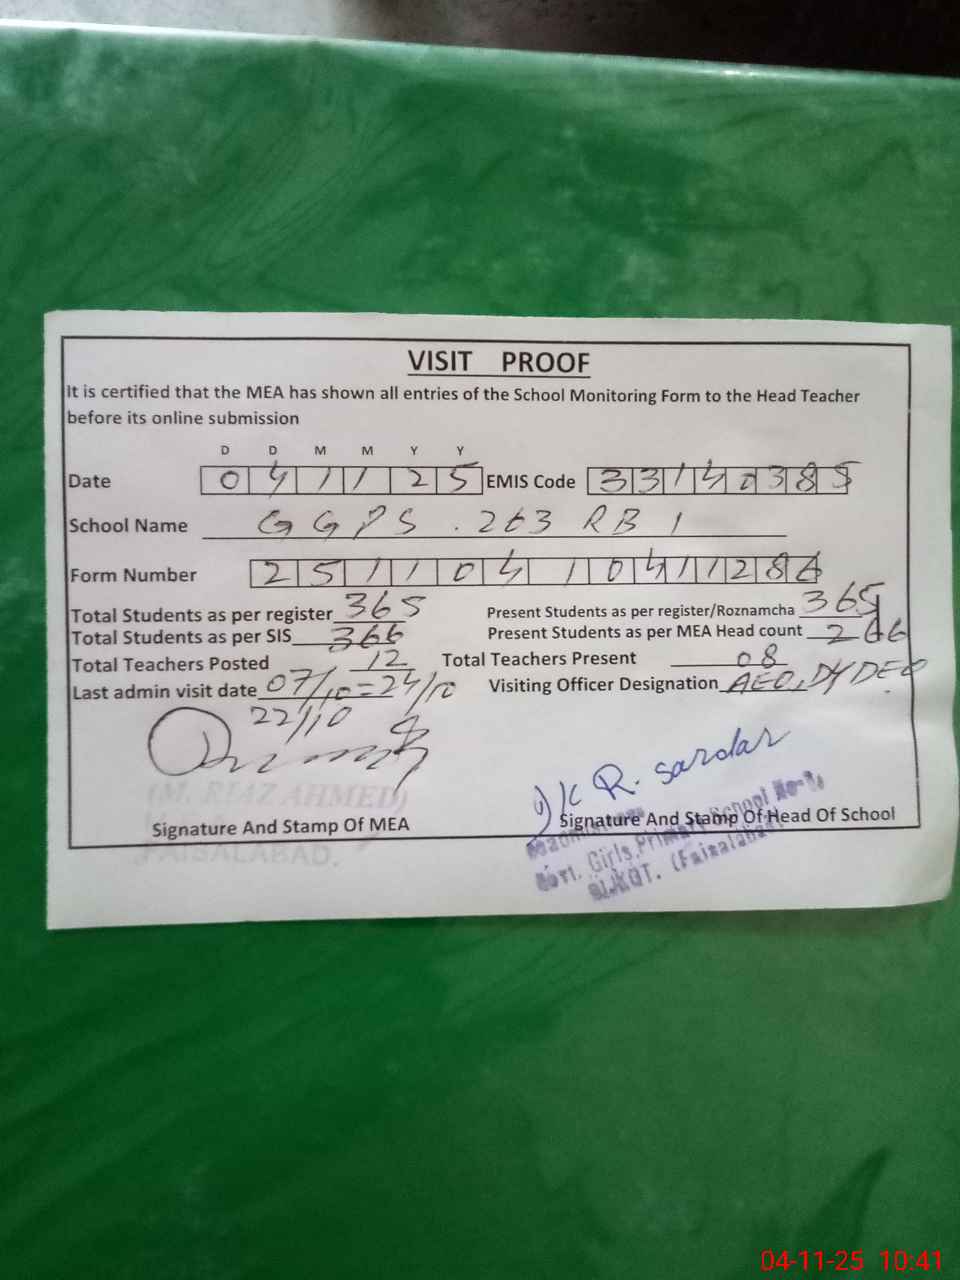 VISIT PROOF
It is certified that the MEA has shown all entries of the School Monitoring Form to the Head Teacher
before its online submission
D D M M Y Y
Date 041125 EMIS Code 33140385
School Name GGPS .263 RB 1
Form Number 251104 10411286
Total Students as per register 365 Present Students as per register/Roznamcha 365
Total Students as per SIS 366 Present Students as per MEA Head count 266
Total Teachers Posted 12 Total Teachers Present 08
Last admin visit date 07/10=24/10 Visiting Officer Designation AEO, DY DEO
22/10
R. sardar
(M. RIAZ AHMED)
Signature And Stamp Of MEA Signature And Stamp Of Head Of School
FAISALABAD.
Govt. Girls Primary School No-1,
(Faisalabad)
04-11-25 10:41